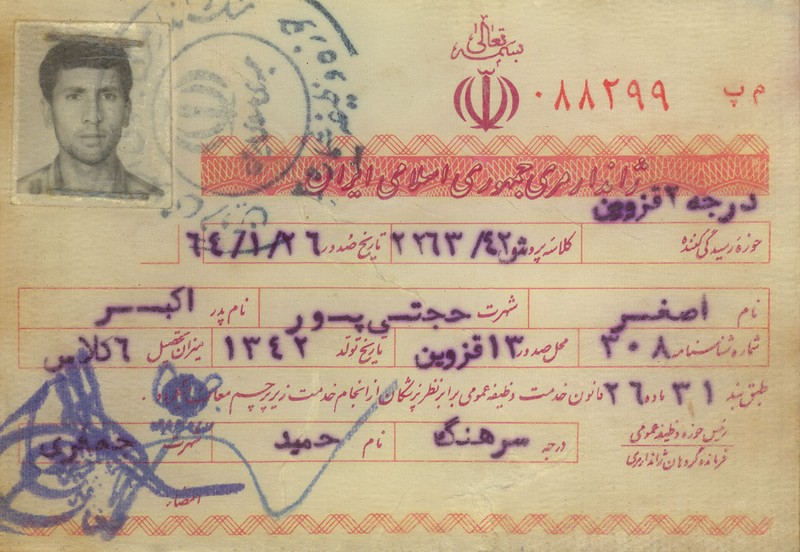 بسمه تعالی
م پ ۰۸۸۲۹۹
ژاندارمری جمهوری اسلامی ایران
درجه ۲ قزوین
حوزه رسیدگی کننده کلاسه پرونده ۲۲۶۳/۴۲ تاریخ صدور ۶۴/۱/۲۶
نام اصغر شهرت حجتی پور نام پدر اکبر
شماره شناسنامه ۳۰۸ محل صدور ۱۳ قزوین تاریخ تولد ۱۳۴۲ میزان تحصیل ۶ کلاس
طبق بند ۳۱ ماده ۲۶ قانون خدمت وظیفه عمومی برابر نظر پزشکان از انجام خدمت زیر پرچم معاف
رئیس حوزه وظیفه عمومی
فرمانده گروهان ژاندارمری
درجه سرهنگ نام حمید شهرت جعفری
امضاء